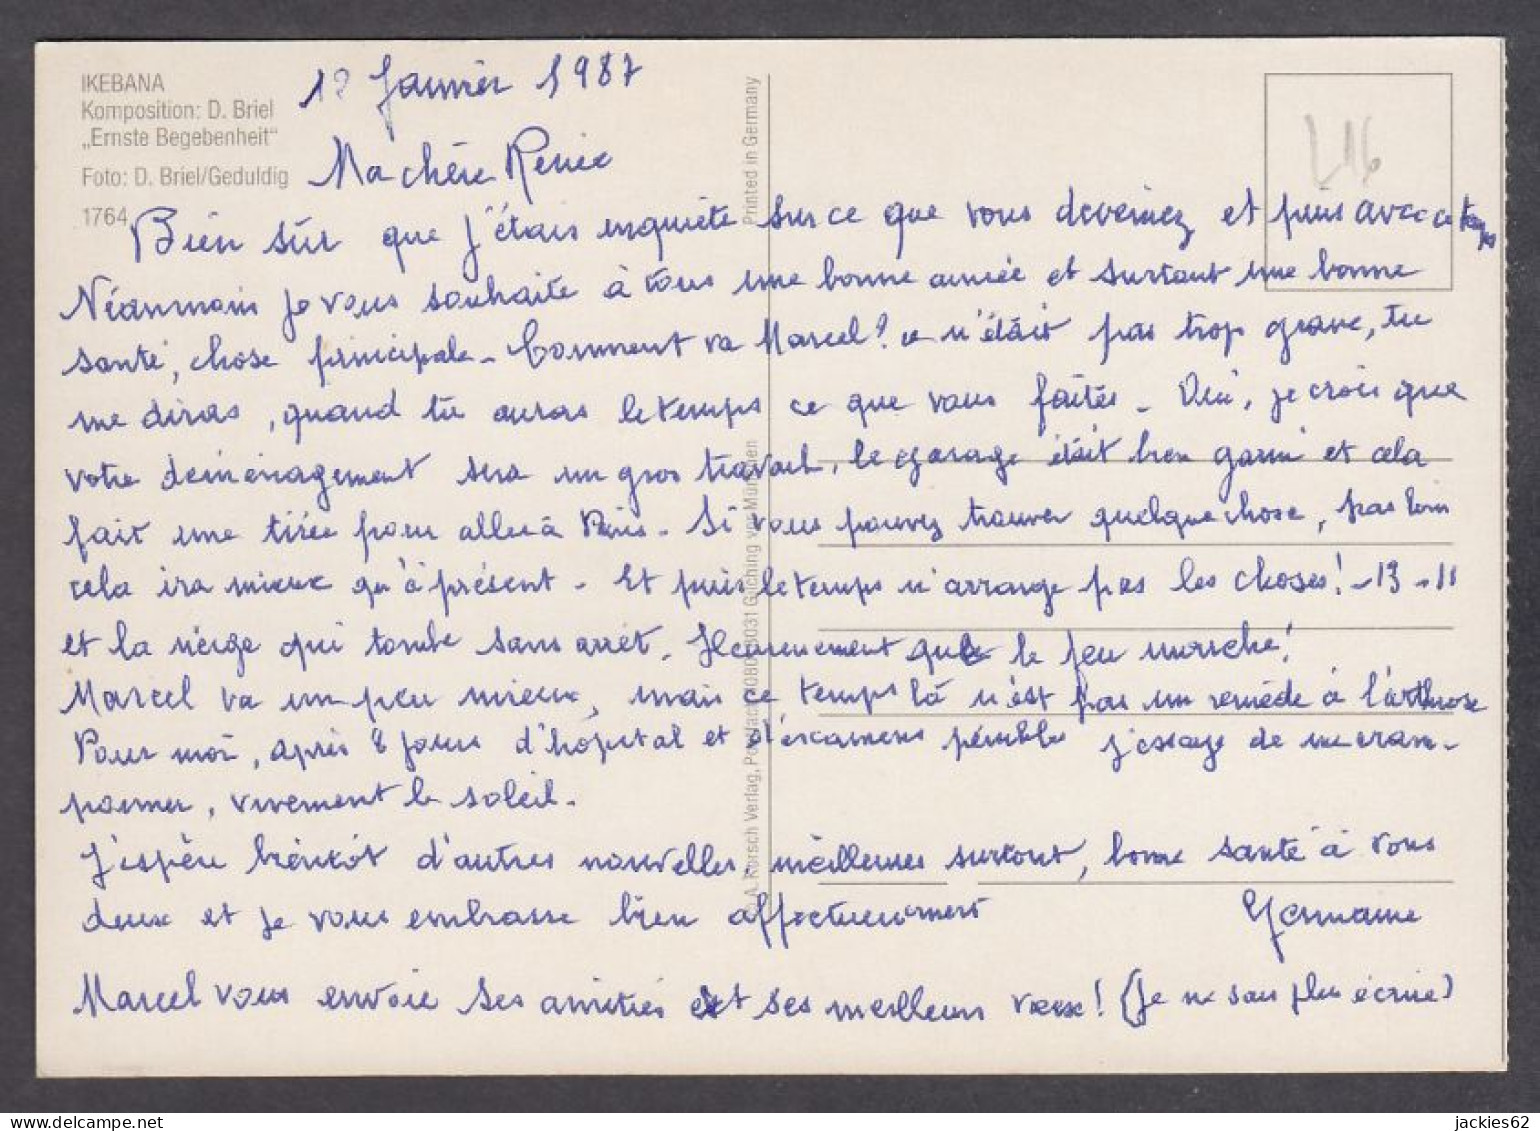 IKEBANA
Komposition: D. Briel
„Ernste Begebenheit“
Foto: D. Briel/Geduldig
1764
Printed in Germany
A. Korsch Verlag, Postfach 1080, 8031 Gilching vor München
L16
12 Janvier 1987
Ma chère Renée
Bien sûr que j'étais inquiète sur ce que vous deveniez et puis avec ce temps
Néanmoins je vous souhaite à tous une bonne année et surtout une bonne
santé, chose principale - Comment va Marcel? ce n'était pas trop grave, tu
me diras, quand tu auras le temps ce que vous faites - Oui, je crois que
votre déménagement sera un gros travail, le garage était bien garni et cela
fait une tirée pour aller à - Si vous pouvez trouver quelque chose, pas loin
cela ira mieux qu'à présent - Et puis le temps n'arrange pas les choses! -13 -11
et la neige qui tombe sans arrêt. Heureusement que le feu marche!
Marcel va un peu mieux, mais ce temps là n'est pas un remède à l'arthrose
Pour moi, après 8 jours d'hôpital et d'examens pénibles j'essaye de me cram-
ponner, vivement le soleil.
J'espère bientôt d'autres nouvelles, meilleures surtout, bonne santé à vous
deux et je vous embrasse bien affectueusement
Germaine
Marcel vous envoie ses amitiés et ses meilleurs vœux! (Je ne sais plus écrire)
jackies62